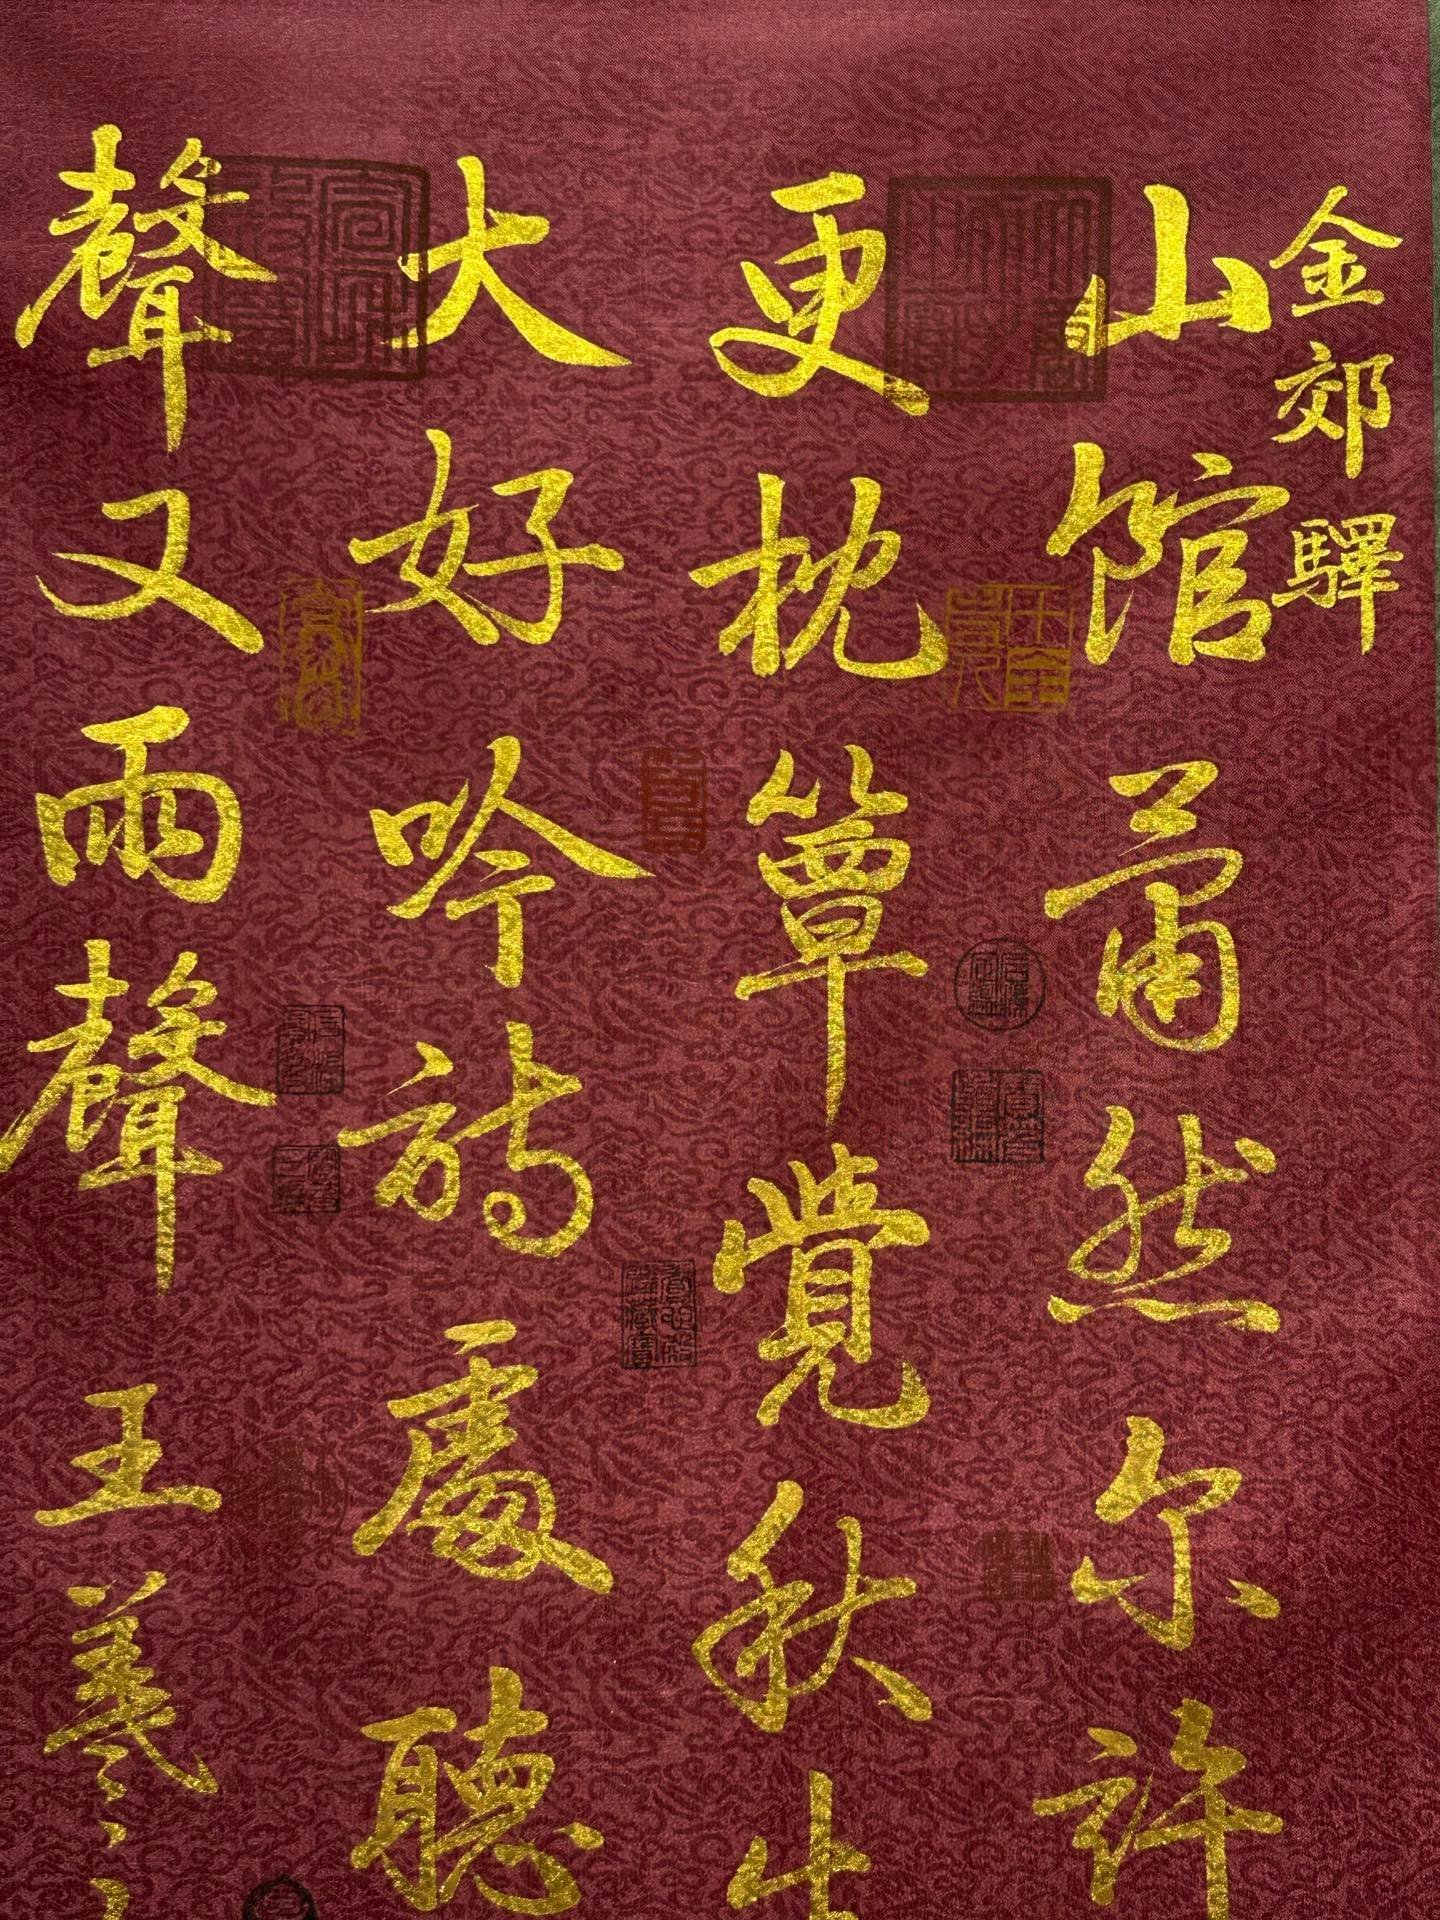 金郊驛
山馆蕭然尔許
更枕簟覺秋生
大好吟詩處聽
聲又雨聲 王羲之